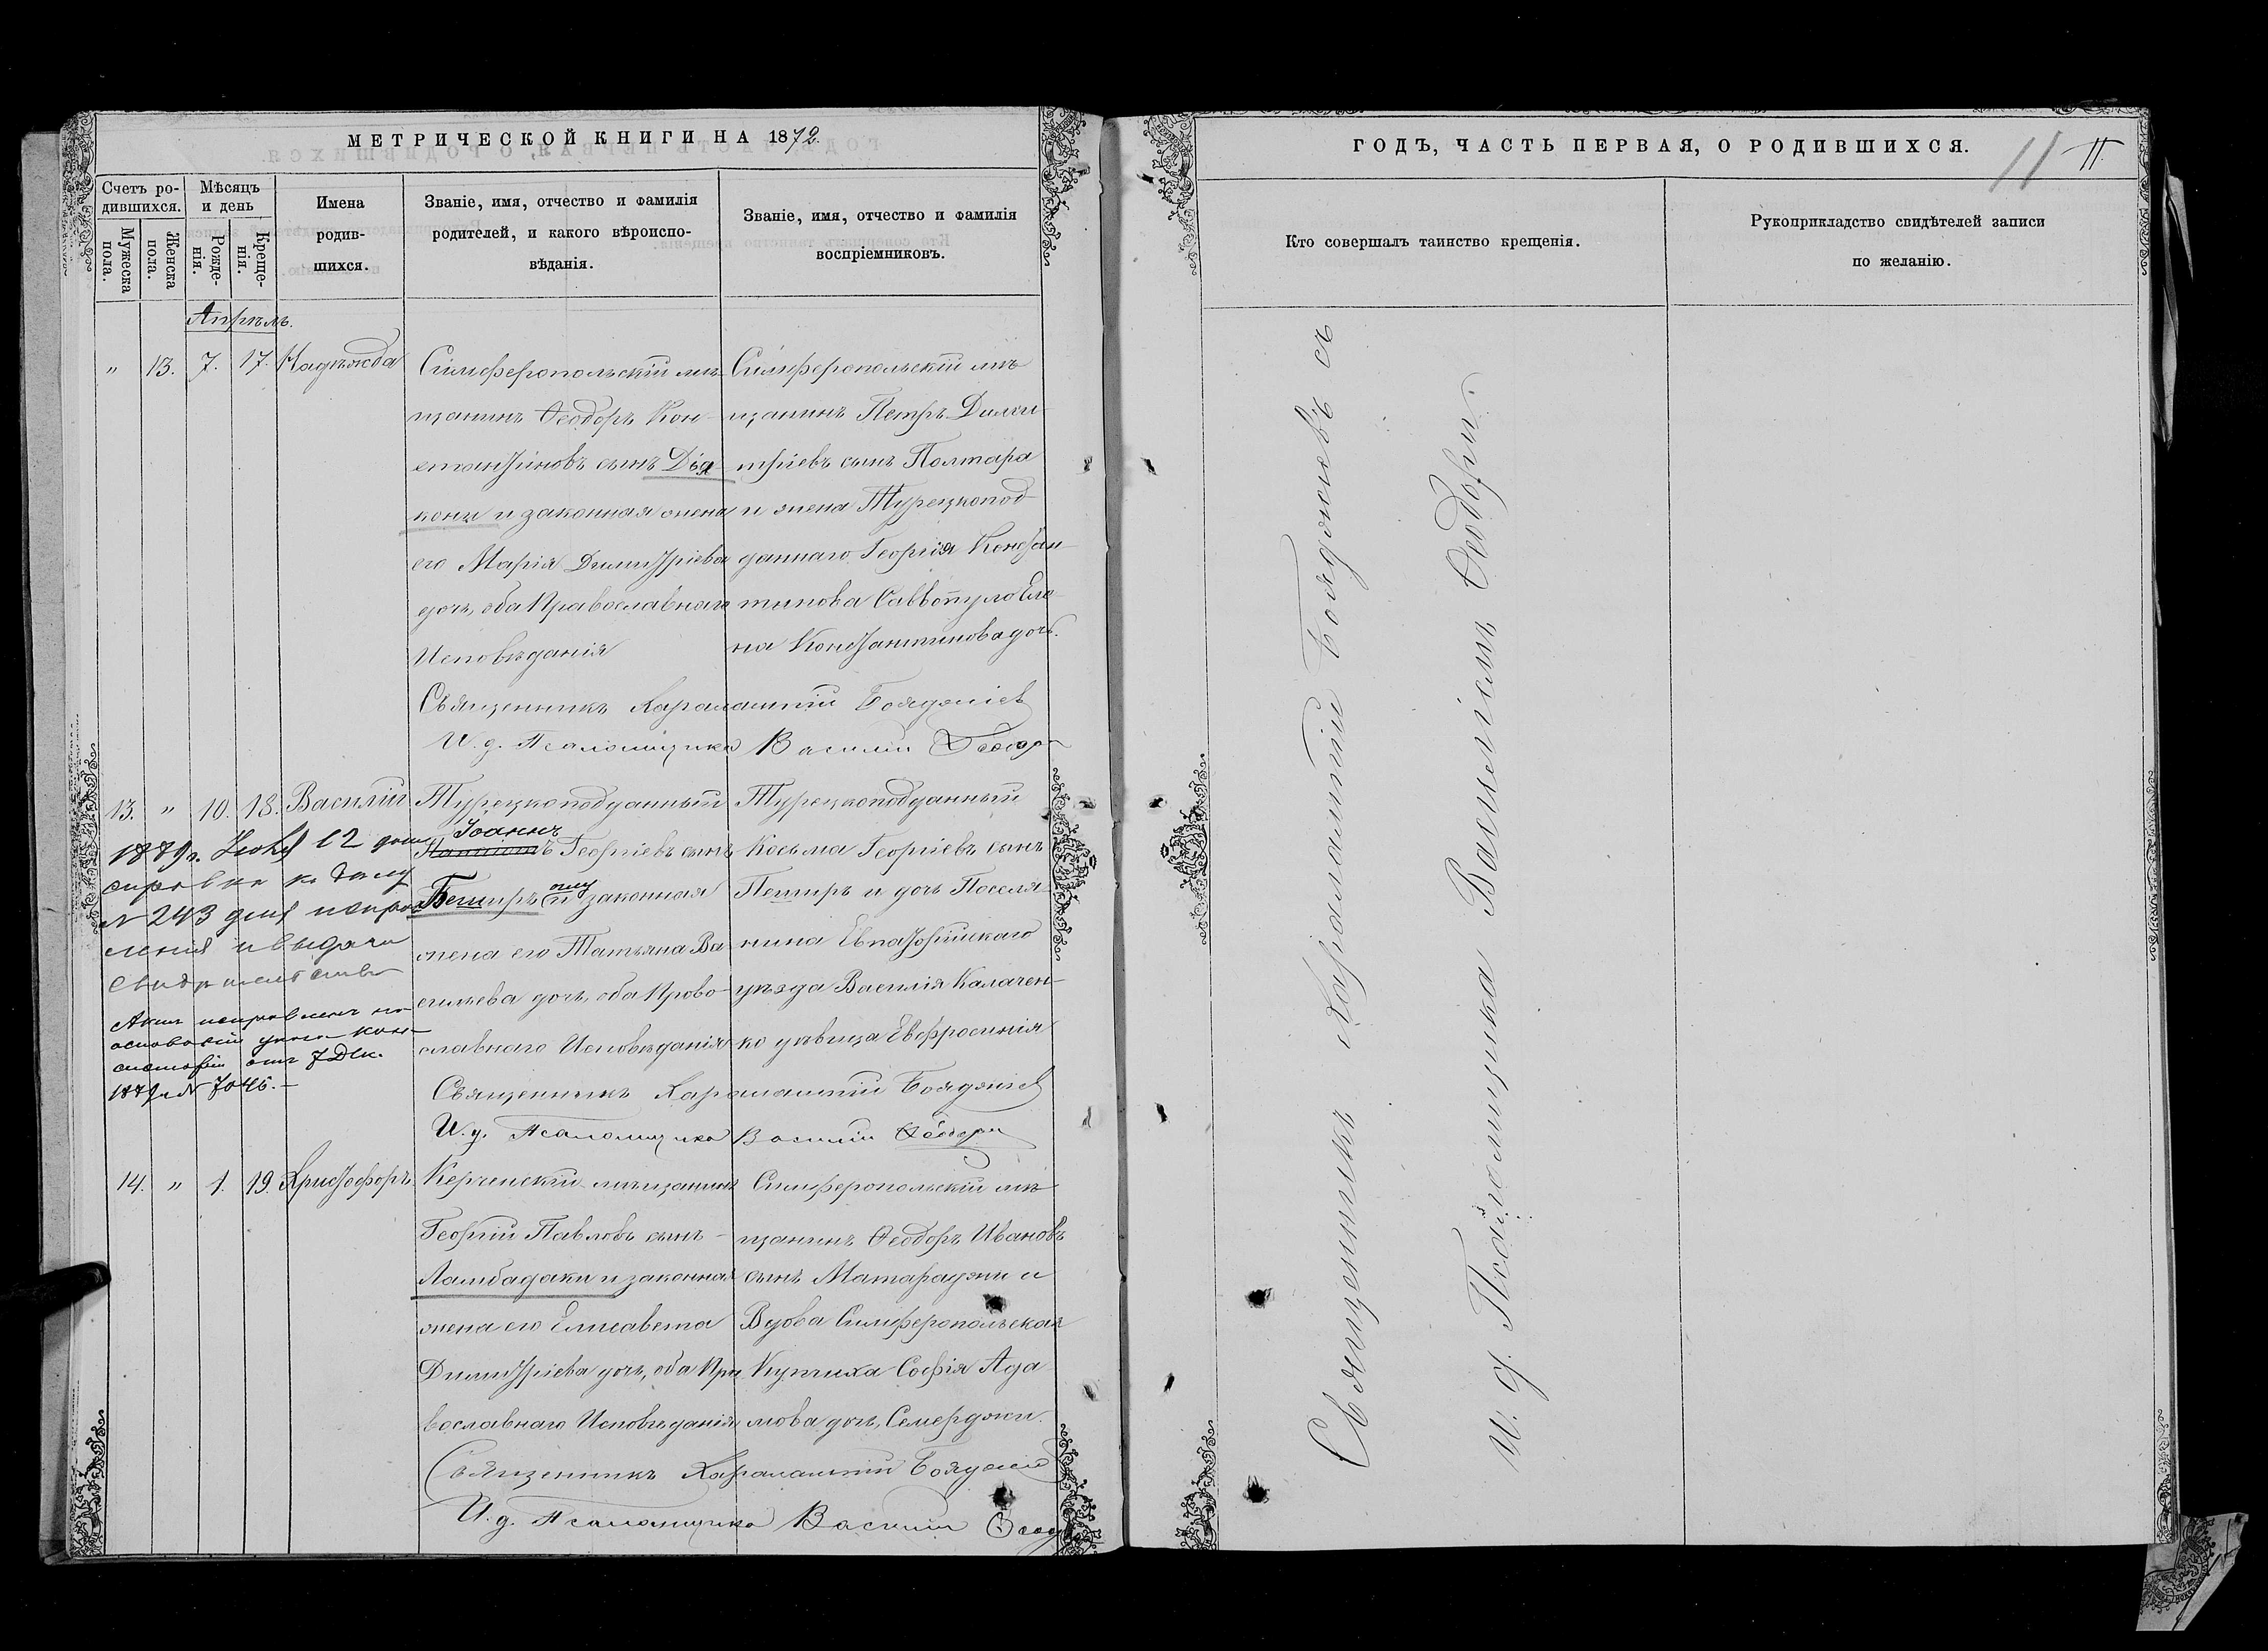 МЕТРИЧЕСКОЙ КНИГИ НА 1872.
Счетъ ро-
дившихся.
Мѣсяцъ
и день
Мужеска
пола.
Женска
пола.
Рожде-
нія.
Креще-
нія.
Имена
родив-
шихся.
Званіе, имя, отчество и фамилія
родителей, и какого вѣроиспо-
вѣданія.
Званіе, имя, отчество и фамилія
воспріемниковъ.
Апрѣль.
" 13. 7. 17. Надѣжда
Симферопольскій мѣ-
щанинъ Ѳеодоръ Кон-
стантиновъ сынъ Дія-
коны и законная жена
его Марія Димитріева
дочь, оба Православнаго
Исповѣданія
Симферопольскій мѣ
щанинъ Петръ Дими-
тріевъ сынъ Полтара
и жена Турецкопод-
даннаго Георгія Констан-
тинова Саввопуло Еле-
на Константинова дочь.
Священникъ Харалампій Бояджіев
И. д. Псаломщика Василій Ѳеодори
13. " 10. 18. Василій
Турецкоподданный
Іоаннъ
Георгіевъ сынъ
Беширъ и законная
жена его Татьяна Ва
сильева дочь, оба Право-
славнаго Исповѣданія
Турецкоподданный
Косьма Георгіевъ сынъ
Пеширъ и дочь Поселя-
нина Евпаторійскаго
уѣзда Василія Калачен-
ко дѣвица Евфросинія
1879г. 12 дан
справка к делу
N 243 для исправ
ления и выдачи
свидетельства
Акт исправленъ на
основаніи указа кон-
систоріи отъ 7 Дек.
1879 г. N 7045.-
Священникъ Харалампій Бояджіев
И. д. Псаломщика Василій Ѳеодори
14. " 1. 19. Христофоръ
Керченскій мѣщанинъ
Георгій Павловъ сынъ
Ламбадаки и законная
жена его Елисавета
Димитріева дочь, оба Пра
вославнаго Исповѣданія
Симферопольскій мѣ
щанинъ Ѳеодоръ Ивановъ
сынъ Матараджи и
Вдова Симферопольская
Купчиха Софія Ада
мова дочь, Семерджи.
Священникъ Харалампій Бояджіев
И. д. Псаломщика Василій Ѳеодори
ГОДЪ, ЧАСТЬ ПЕРВАЯ, О РОДИВШИХСЯ.
11 11.
Кто совершалъ таинство крещенія.
Рукоприкладство свидѣтелей записи
по желанію.
Священникъ Харалампій Бояджіевъ съ
и. д. Псаломщика Василіемъ Ѳеодори.